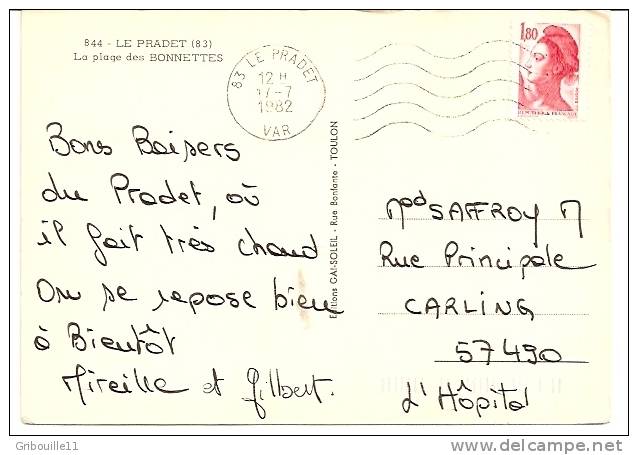 844 - LE PRADET (83)
La plage des BONNETTES
83 LE PRADET
12 H
17-7
1982
VAR
1,80
Bons Baisers
du Pradet, où
il fait très chaud
On se repose bien
à Bientôt
Mireille et Gilbert.
Editions GAI-SOLEIL - Rue Bonfante - TOULON
SAFFROY M
Rue Principale
CARLING
57490
L'Hôpital
Gribouille11
delcampe.net